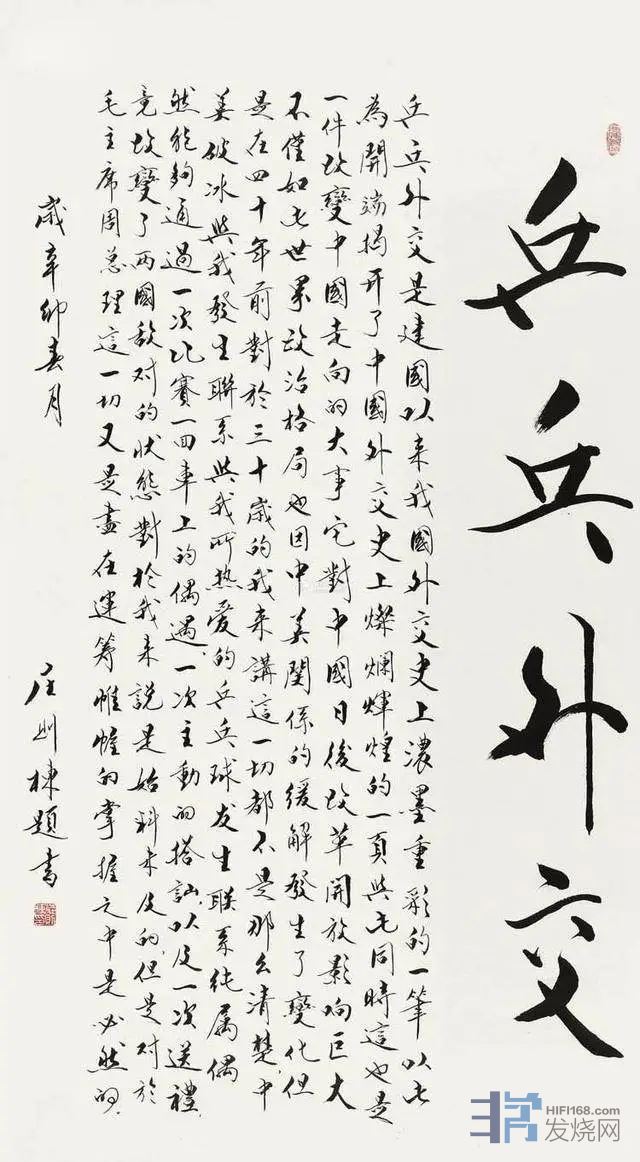 乒乓外交
乒乓外交是建國以来我國外交史上濃墨重彩的一筆以此
為開端揭开了中國外交史上燦爛輝煌的一頁與此同時這也是
一件改變中國走向的大事它對中國日後改革開放影响巨大
不僅如此世界政治格局也因中美関係的缓解發生了變化但
是在四十年前對於三十歲的我来講這一切都不是那么清楚中
美破冰與我發生聯系與我所热爱的乒乓球发生联系纯属偶
然能夠通過一次比賽一回車上的偶遇一次主動的搭訕以及一次送禮
竟改變了两國敌对的状態對於我来説是始料未及的但是对於
毛主席周总理這一切又是盡在運筹帷幄的掌握之中是必然的
歲辛卯春月
庄则栋題书
HIFI168.com
发烧网